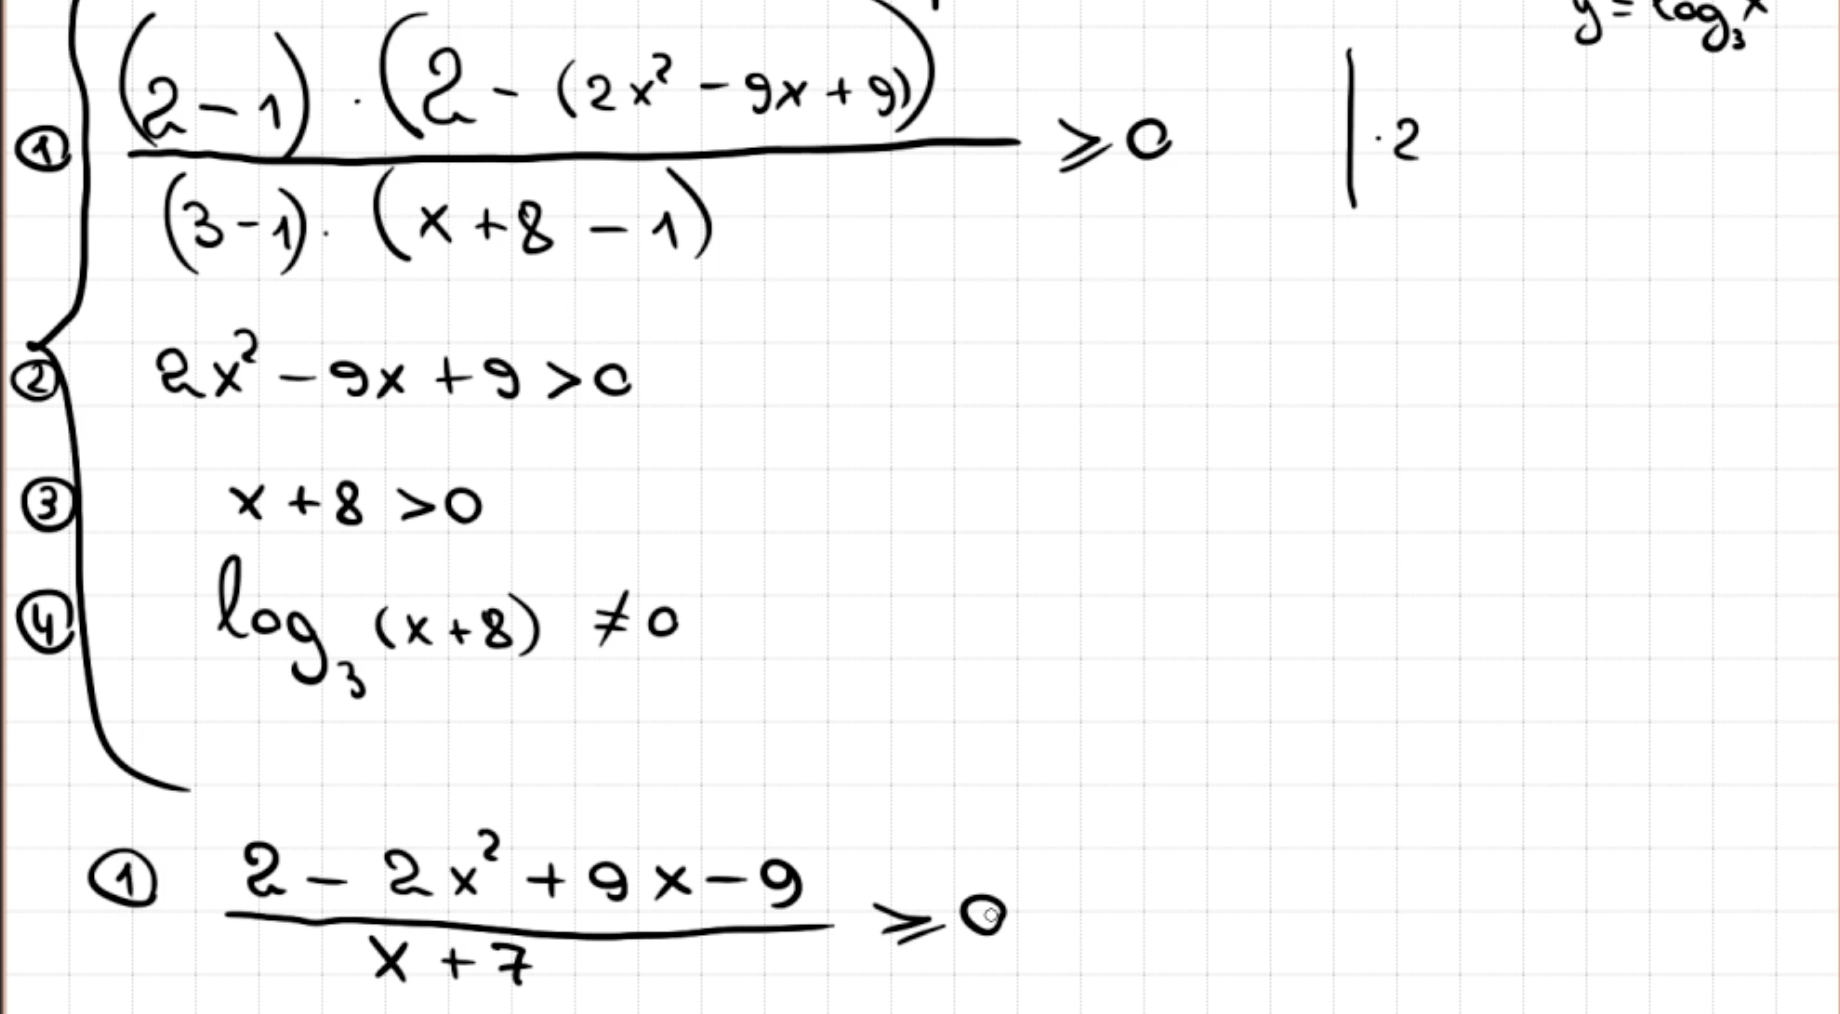 y = log₃ x
① ((2 - 1) · (2 - (2x² - 9x + 9))) / ((3 - 1) · (x + 8 - 1)) ⩾ 0 | · 2
② 2x² - 9x + 9 > 0
③ x + 8 > 0
④ log₃ (x + 8) ≠ 0
① (2 - 2x² + 9x - 9) / (x + 7) ⩾ 0